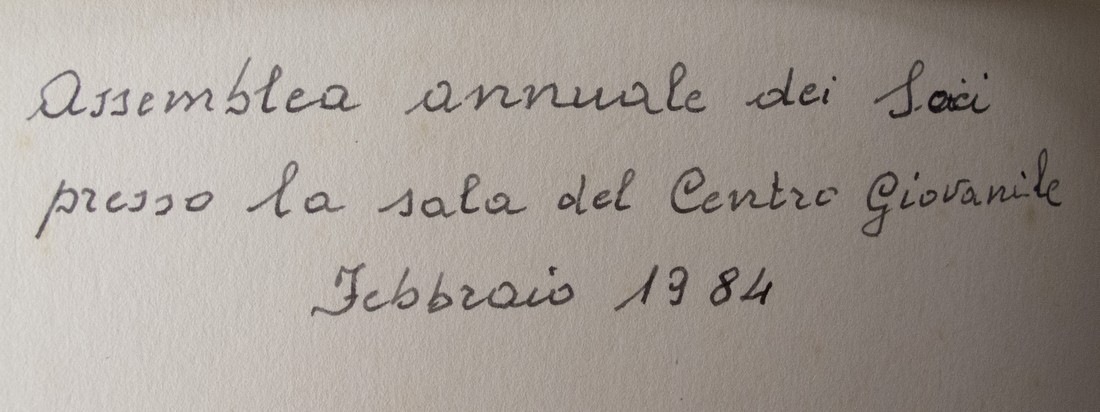 Assemblea annuale dei Soci
presso la sala del Centro Giovanile
Febbraio 1984